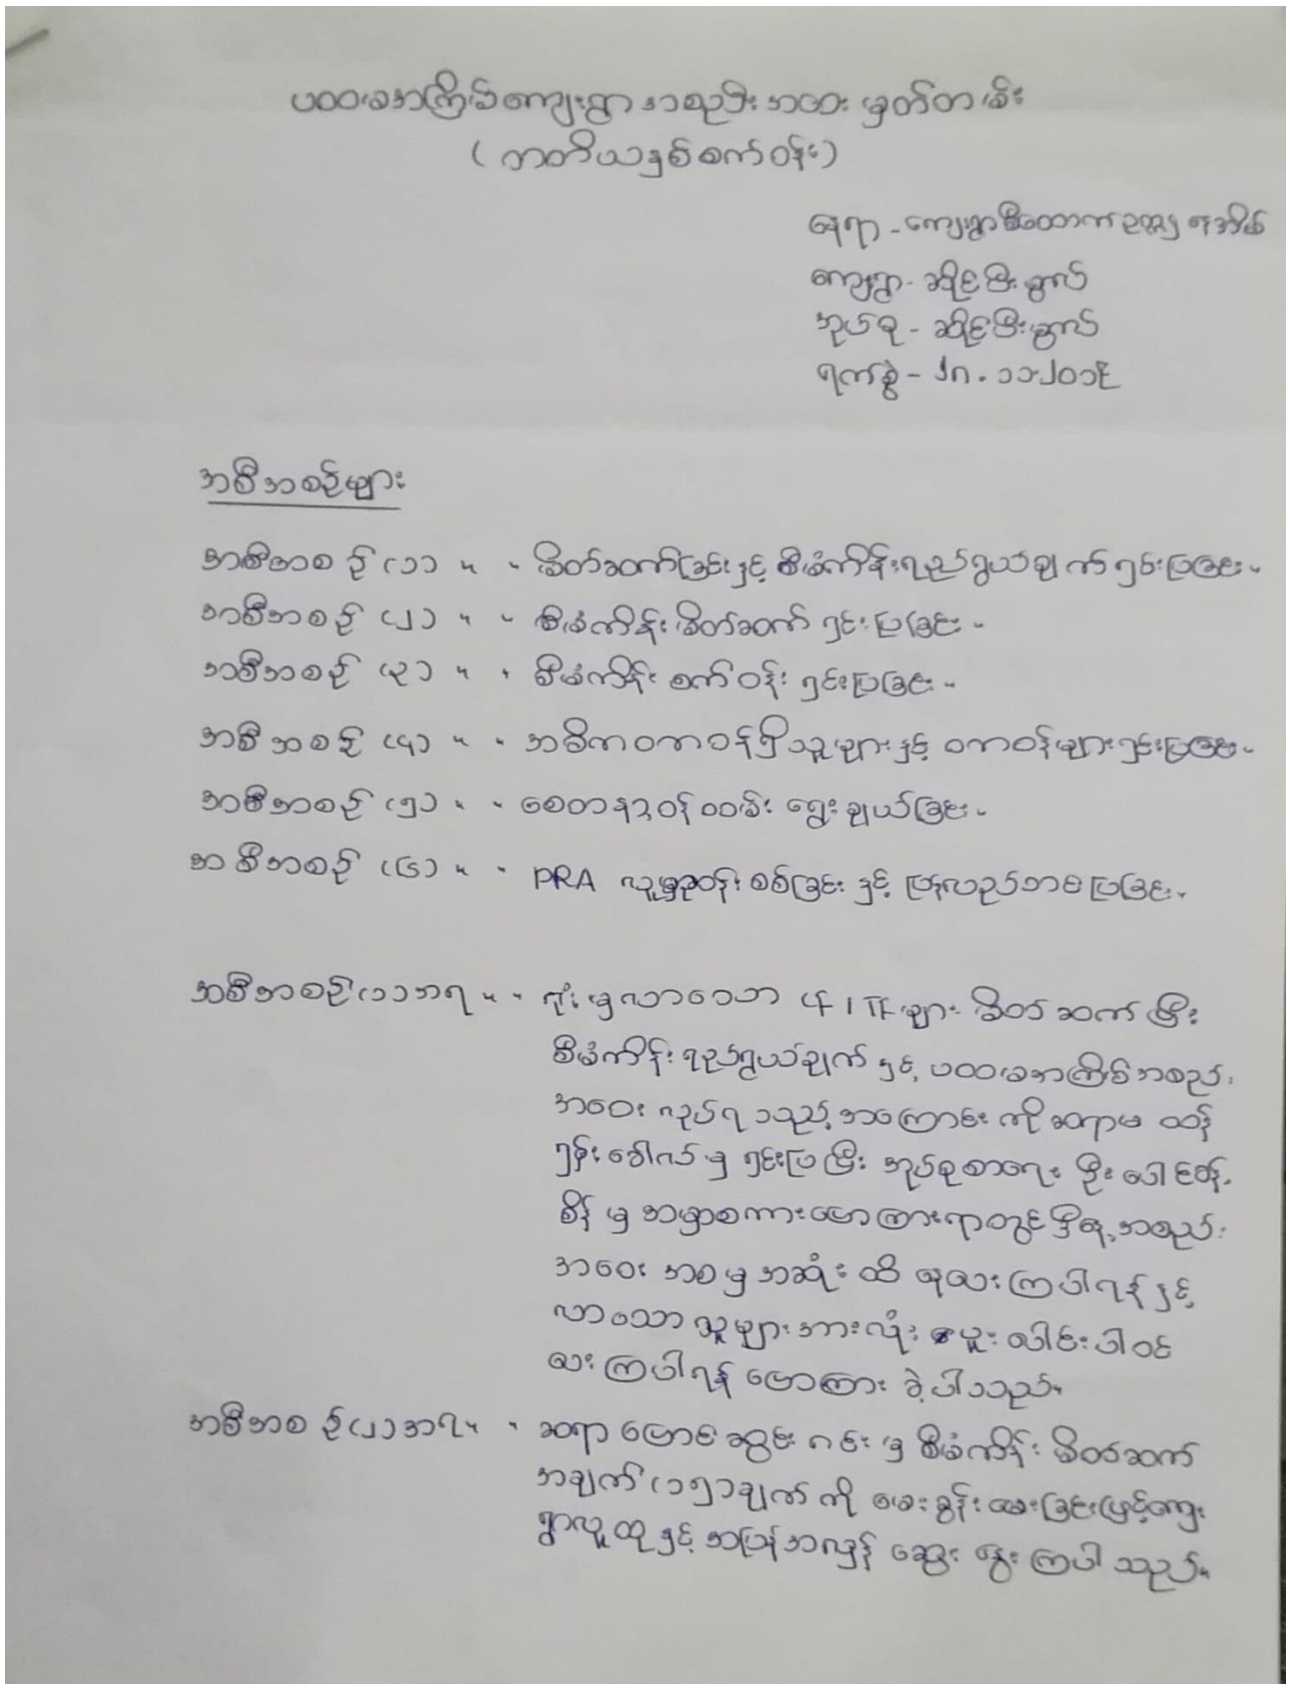 ပထမအကြိမ်ကျေးရွာ အစည်းအဝေး မှတ်တမ်း
(တတိယနှစ်စက်ဝန်း)
နေရာ - ကျေးရွာစီထောက်ဥက္ကဌ နေအိမ်
ကျေးရွာ - ဆိုင်ဇီးဒွာလ်
အုပ်စု - ဆိုင်ဇီးဒွာလ်
ရက်စွဲ - ၂၈.၁၁.၂၀၁၆
အစီအစဉ်များ
အစီအစဉ် (၁) ။ ။ မိတ်ဆက်ခြင်းနှင့် စီမံကိန်းရည်ရွယ်ချက် ရှင်းပြခြင်း။
အစီအစဉ် (၂) ။ ။ စီမံကိန်း မိတ်ဆက် ရှင်းပြခြင်း။
အစီအစဉ် (၃) ။ ။ စီမံကိန်း စက်ဝန်း ရှင်းပြခြင်း။
အစီအစဉ် (၄) ။ ။ အဓိကတာဝန်ရှိသူများနှင့် တာဝန်များရှင်းပြခြင်း။
အစီအစဉ် (၅) ။ ။ စေတနာ့ဝန်ထမ်း ရွေးချယ်ခြင်း။
အစီအစဉ် (၆) ။ ။ PRA လူမှုဆန်းစစ်ခြင်း နှင့် ပြန်လည်တင်ပြခြင်း။
အစီအစဉ် (၁) အရ ။ ။ ရုံးမှလာသော CF / TF များ မိတ်ဆက်ပြီး
စီမံကိန်း ရည်ရွယ်ချက် နှင့် ပထမအကြိမ်အစည်း
အဝေး လုပ်ရသည့်အကြောင်း ကို ဆရာမ ထန်
ရှန်း မှ ရှင်းပြပြီး အုပ်စုစာရေး ဦး
စိန် မှ အမှာစကားပြောကြားရာတွင် ဒီနေ့အစည်း
အဝေး အစမှအဆုံး ထိ နေပေးကြပါရန်နှင့်
လာသော သူများအားလုံး ပူးပေါင်းပါဝင်
ပေးကြပါရန် ပြောကြား ခဲ့ပါသည်။
အစီအစဉ် (၂) အရ ။ ။ ဆရာ မှ စီမံကိန်း မိတ်ဆက်
အချက် (၁၅) ချက် ကို မေးခွန်းမေးခြင်းဖြင့်ကျေး
ရွာလူထုနှင့် အပြန်အလှန် ဆွေးနွေးကြပါသည်။